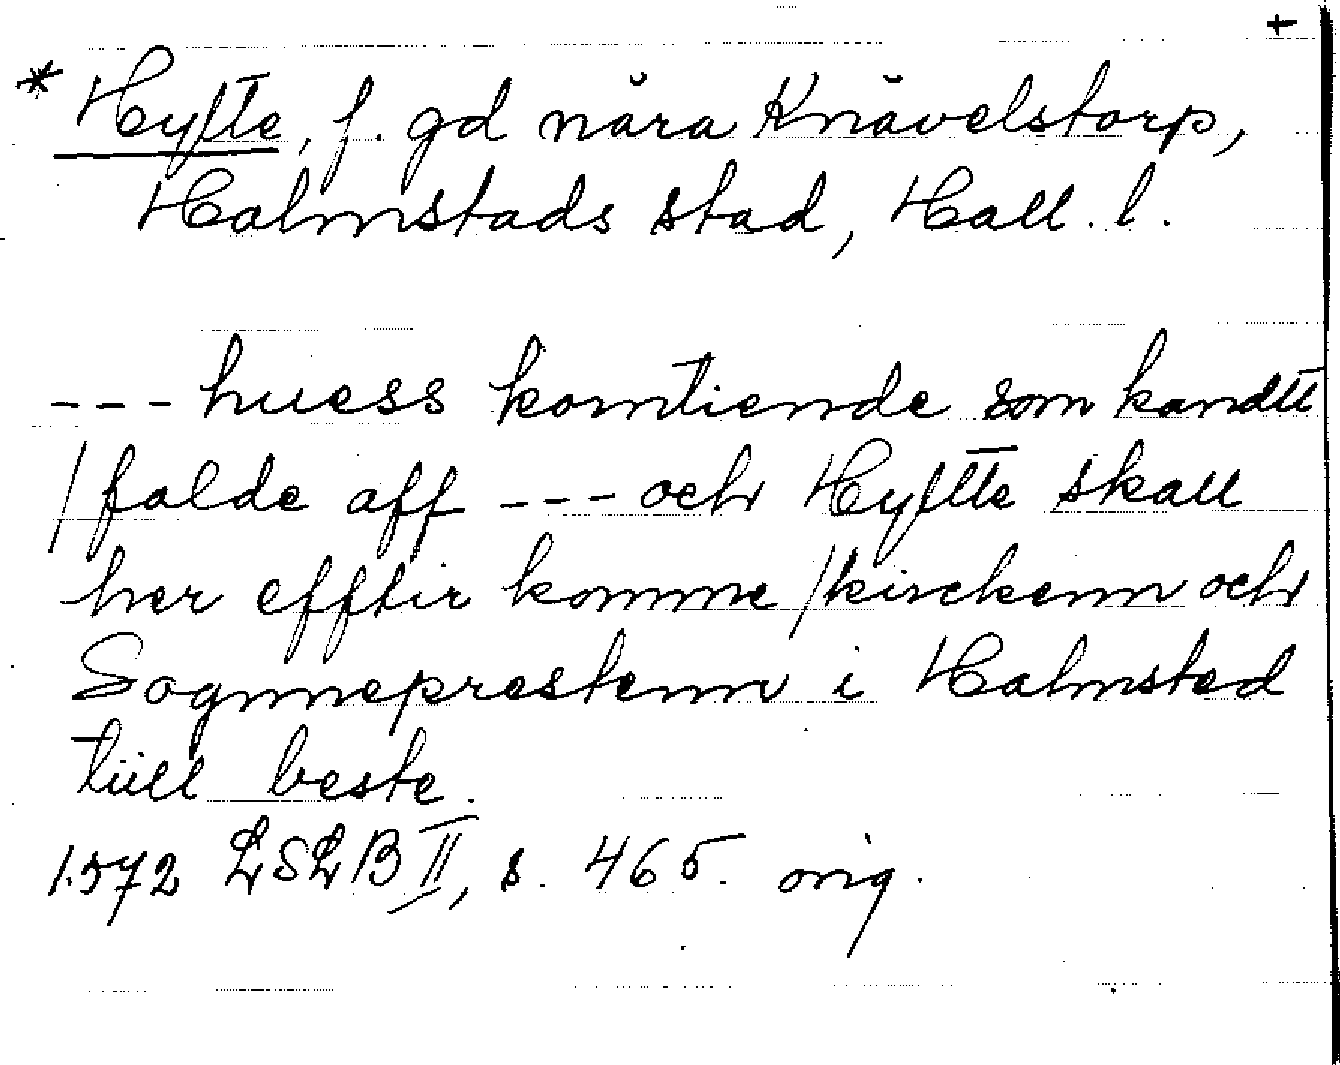 +
* Hyltte, f. gd nära Knävelstorp,
Halmstads stad, Hall. l.
--- huess korntiende som kandtt
/ falde aff --- och Hyltte skall
her efftir komme / kirckenn och
Sognneprestenn i Halmsted
tiill beste.
1572 LSLB II, s. 465. orig.